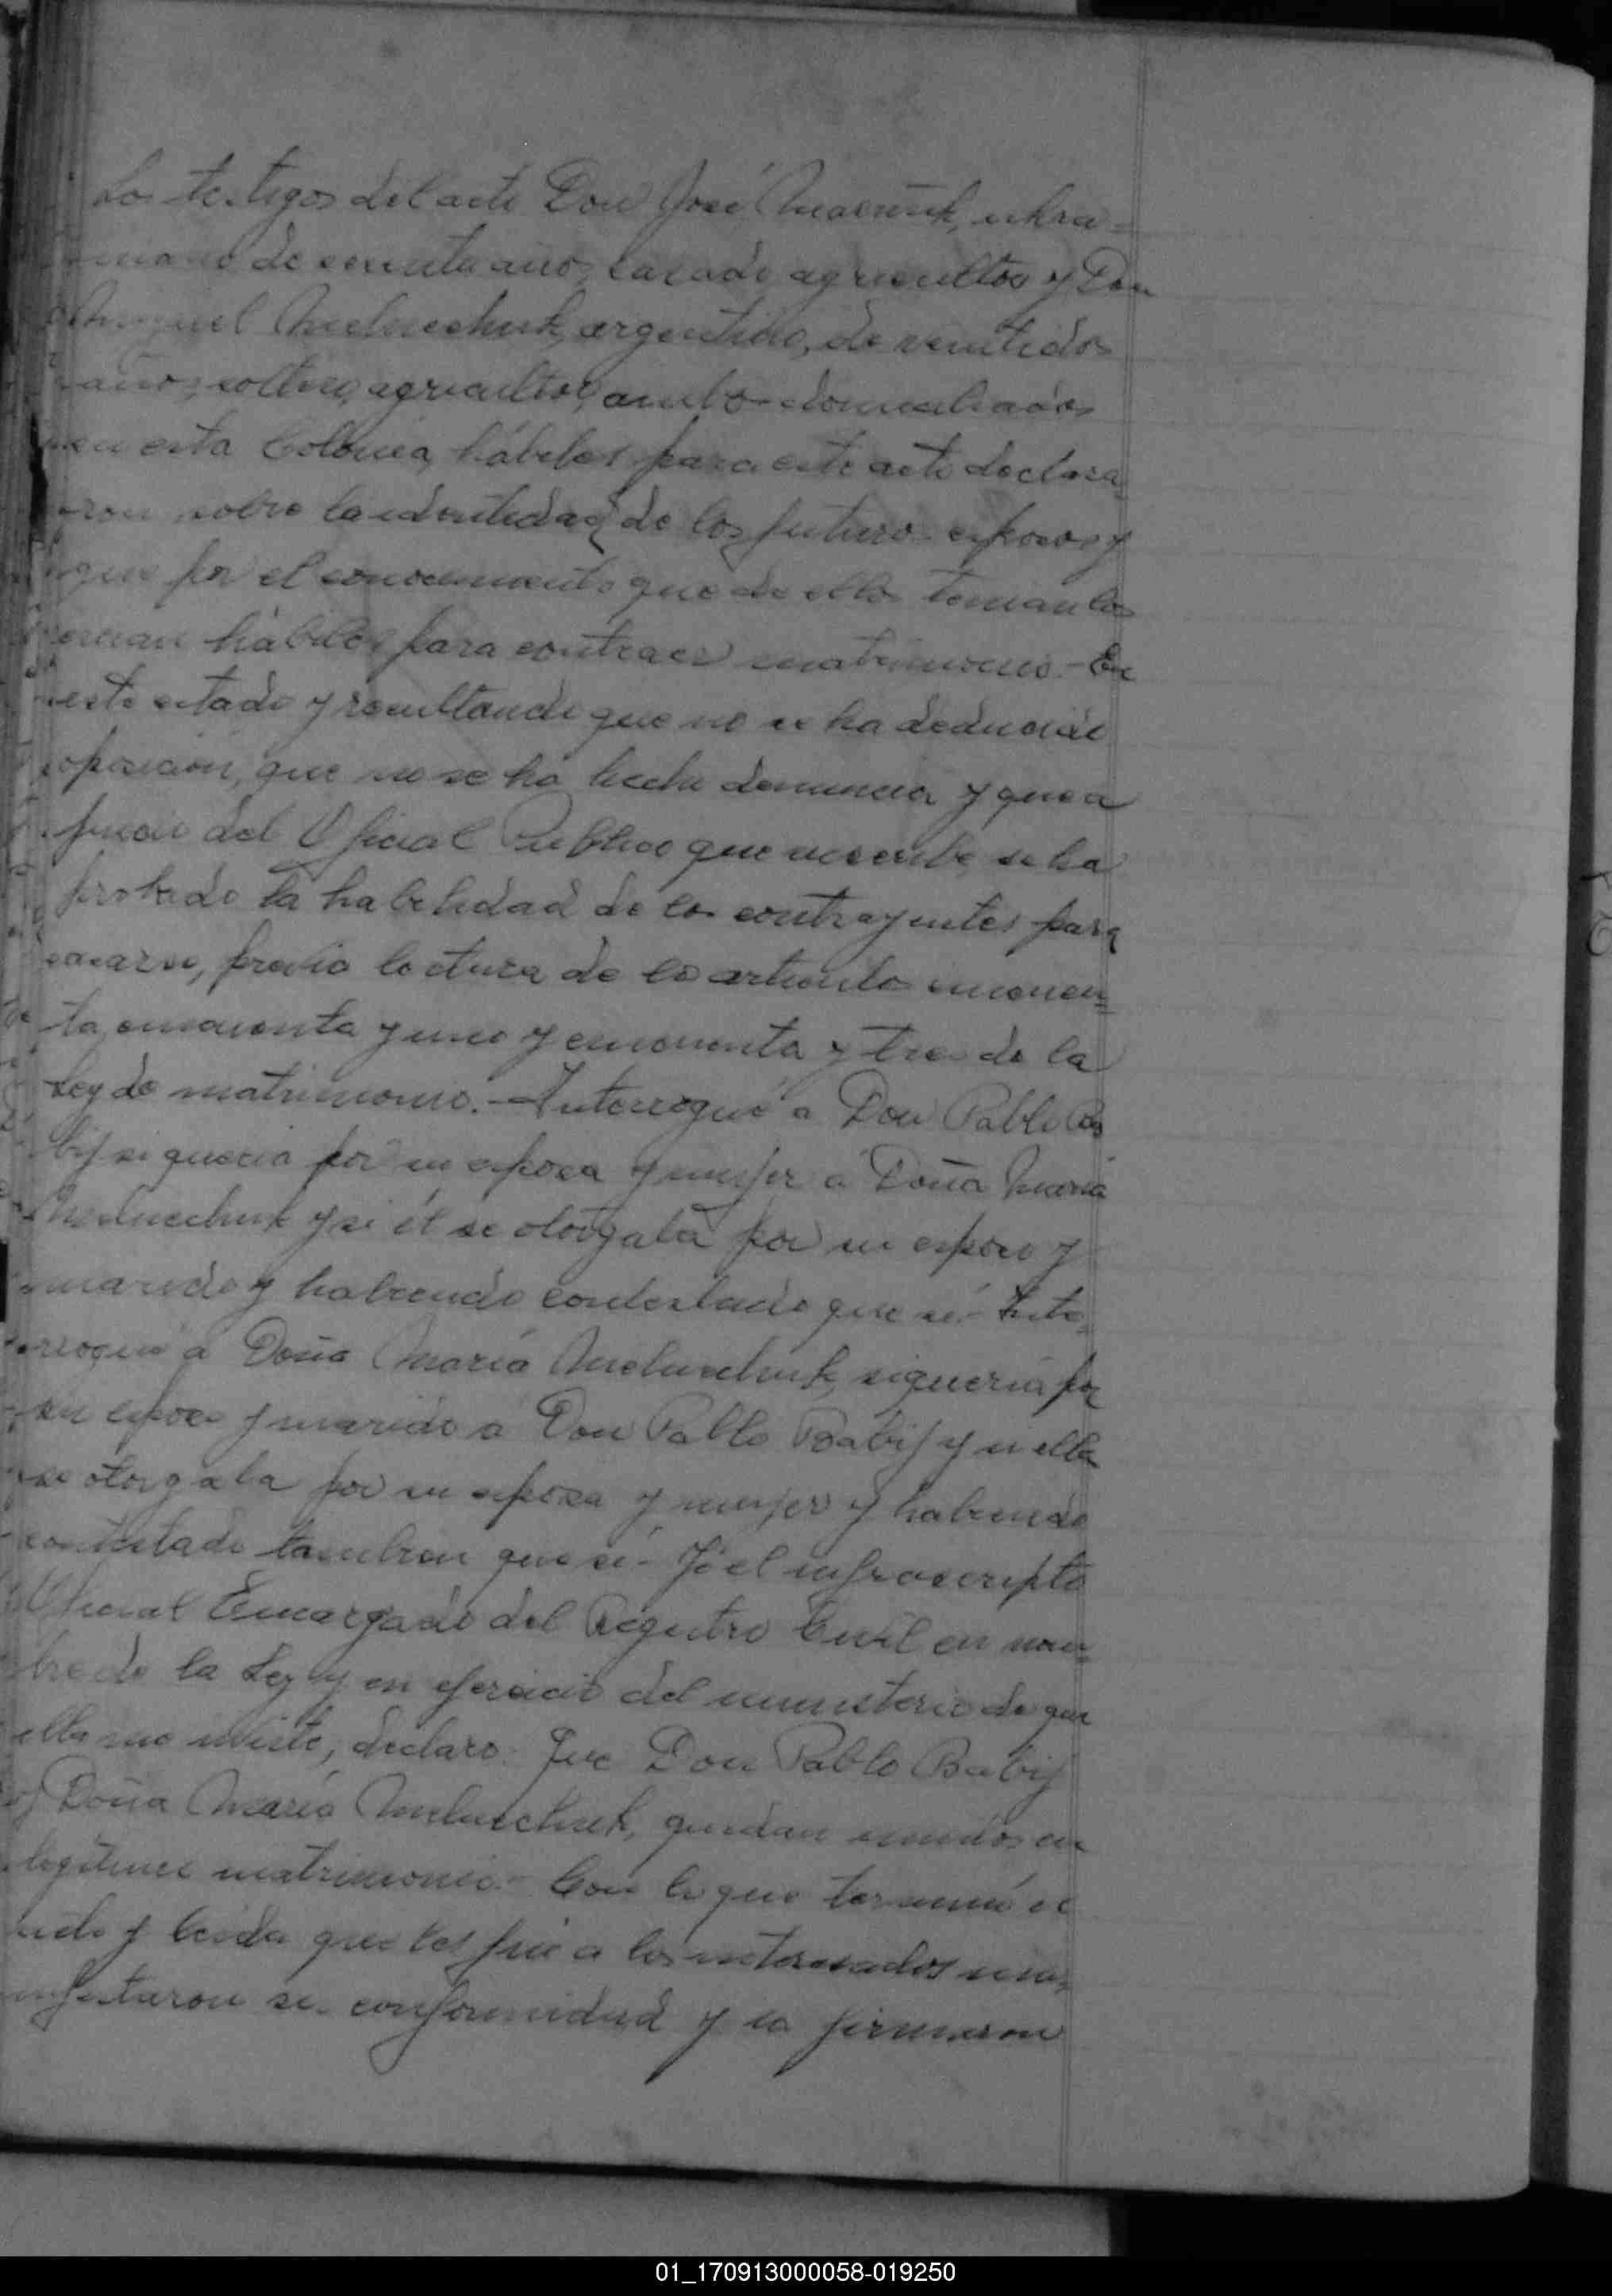 Los testigos del acto Don José, ukra=
niano de sesenta años, casado, agricultor y Don
Miguel Melnechuk, argentino, de veintidos
años, soltero, agricultor, ambos domiciliados
en esta Colonia, hábiles para este acto declara=
ron sobre la identidad de los futuros esposos y
que por el conocimiento que de ellos tenian los
creian hábiles para contraer matrimonio.- En
este estado y resultando que no se ha deducido
oposicion, que no se ha hecho denuncia y que a
juicio del Oficial Publico que suscribe, se ha
probado la habilidad de los contrayentes para
casarse, previa lectura de los articulos cincuen=
ta, cincuenta y uno y cincuenta y tres de la
Ley de matrimonio.- Interrogué a Don Pablo Ba
bij si queria por su esposa y mujer a Doña Maria
Melnechuk y si él se otorgaba por su esposo y
marido y habiendo contestado que sí.- Inte=
rrogué a Doña María Melnechuk, si queria por
su esposo y marido a Don Pablo Babij y si ella
se otorgaba por su esposa y mujer y habiendo
contestado tambien que sí.- Yo el infrascripto
Oficial Encargado del Registro Civil en nom=
bre de la Ley y en ejercicio del ministerio de que
ella me inviste, declaro: Que Don Pablo Babij
y Doña María Melnechuk, quedan unidos en
legitimo matrimonio.- Con lo que terminó el
acto y leida que les fué a los interesados mani=
festaron su conformidad y la firmaron
01_170913000058-019250